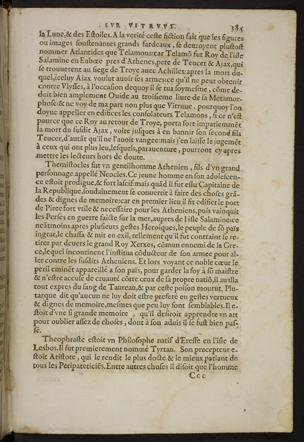 SVR VITRVVE. 385
la Lune, & des Estoiles. A la verité ceste fiction fait que les figures
ou images soustenantes grands fardeaux, se deuroyent plustost
nommer Atlantides que Telamons: car Telamō fut Roy de l'isle
Salamine en Eubœe pres d'Athenes, pere de Teucer & Ajax, qui
se trouuerent au siege de Troye auec Achilles: apres la mort du-
quel, iceluy Aiax voulut auoir ses armes: ce qu'il ne peut obtenir
contre Vlysses, à l'occasion dequoy il se tua soymesme, cōme de-
duit bien amplement Ouide au treiziesme liure de sa Metamor-
phose: & ne voy de ma part non plus que Vitruue, pourquoy l'on
doyue appeller en edifices les consolateurs Telamons, si ce n'est
pource que ce Roy au retour de Troye, porta fort impatiemmēt
la mort du susdit Ajax, voire jusques à en bannir son second fils
Teucer, d'autāt qu'il ne l'auoit vangee: mais j'en laisse le jugemēt
à ceux qui ont plus leu, lesquels, parauenture, pourront cy apres
mettre les lecteurs hors de doute.
Themistocles fut vn gentilhomme Athenien, fils d'vn grand
personnage appellé Neocles. Ce jeune homme en son adolescen-
ce estoit prodigue, & fort lascif: mais quād il fut esleu Capitaine de
la Republique, soudainement se conuertit à faire des choses grā-
des & dignes de memoire: car en premier lieu il fit edifier le port
de Piree fort vtile & necessaire pour les Atheniens, puis vainquit
les Perses en guerre faicte sur la mer, aupres de l'isle Salamine: ce
neātmoins apres plusieurs gestes Heroiques, le peuple de sō païs
ingrat, le chassa & mit en exil, tellement qu'il fut contraint se re-
tirer par deuers le grand Roy Xerxes, cōmun ennemi de la Gre-
ce, lequel incontinent l'institua cōducteur de son armee pour al-
ler contre les susdits Atheniens. Et lors voyant ce noble cœur le
peril eminēt appareillé a son païs, pour garder sa foy à sō maistre
& n'estre accusé de cruauté cōtre ceux de sa propre natiō, il auilla
tout expres du sang de Taureau, & par ceste poison mourut. Plu-
tarque dit qu'aucun ne luy doit estre preferé en gestes vertueux
& dignes de memoire, mesmes que peu luy sont semblables. Il e-
stoit d'vne si grande memoire, qu'il desiroit apprendre vn art
pour oublier assez de choses, dont à son aduis il se fust bien pas-
sé.
Theophraste estoit vn Philosophe natif d'Eresse en l'isle de
Lesbos. Il fut premierement nommé Tyrtan. Son precepteur e-
stoit Aristote, qui le rendit le plus docte & le mieux parlant de
tous les Peripateticiēs. Entre autres choses il disoit que l'homme
Ccc